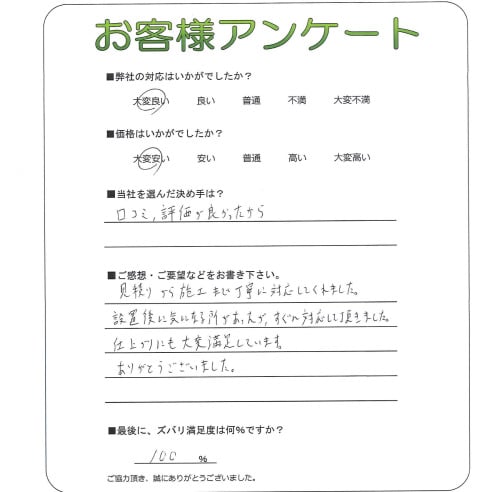 お客様アンケート
■弊社の対応はいかがでしたか？
大変良い 良い 普通 不満 大変不満
■価格はいかがでしたか？
大変安い 安い 普通 高い 大変高い
■当社を選んだ決め手は？
口コミ,評価が良かったから
■ご感想・ご要望などをお書き下さい。
見積りから施工まで丁寧に対応してくれました。
設置後に気になる所があったが,すぐに対応して頂きました。
仕上がりにも大変満足しています。
ありがとうございました。
■最後に、ズバリ満足度は何%ですか？
100 %
ご協力頂き、誠にありがとうございました。